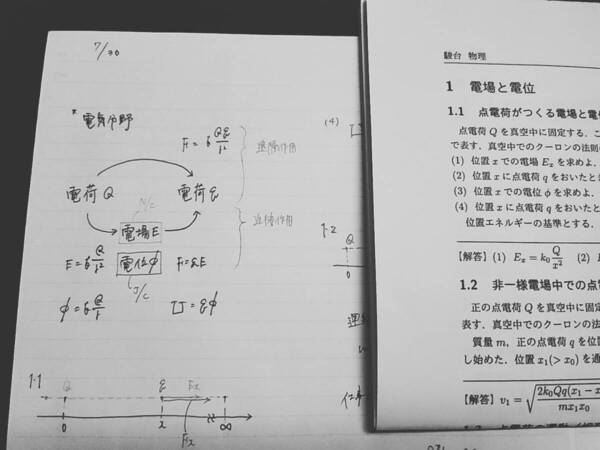 7/30
* 電気分野
F = k Qq/r²
遠隔作用
電荷 Q
電荷 q
N/C
電場E
近接作用
E = k Q/r²
電位φ
F = qE
J/C
φ = k Q/r
U = qφ
1-1
Q
q
Ex
0
x
∞
Fx
(4)
U
1-2
Q
0
駿台 物理
1 電場と電位
1.1 点電荷がつくる電場と電
点電荷 Q を真空中に固定する．こ
で表す．真空中でのクーロンの法則
(1) 位置 x での電場 Ex を求めよ．
(2) 位置 x に点電荷 q をおいたと
(3) 位置 x での電位 φ を求めよ．
(4) 位置 x に点電荷 q をおいた
位置エネルギーの基準とする．
【解答】(1) Ex = k₀ Q/x² (2)
1.2 非一様電場中での点
正の点電荷 Q を真空中に固定
表す．真空中でのクーロンの
質量 m，正の点電荷 q を位置
し始めた．位置 x₁(> x₀) を通
【解答】v₁ = √(2k₀Qq(x₁ − x / mx₁x₀